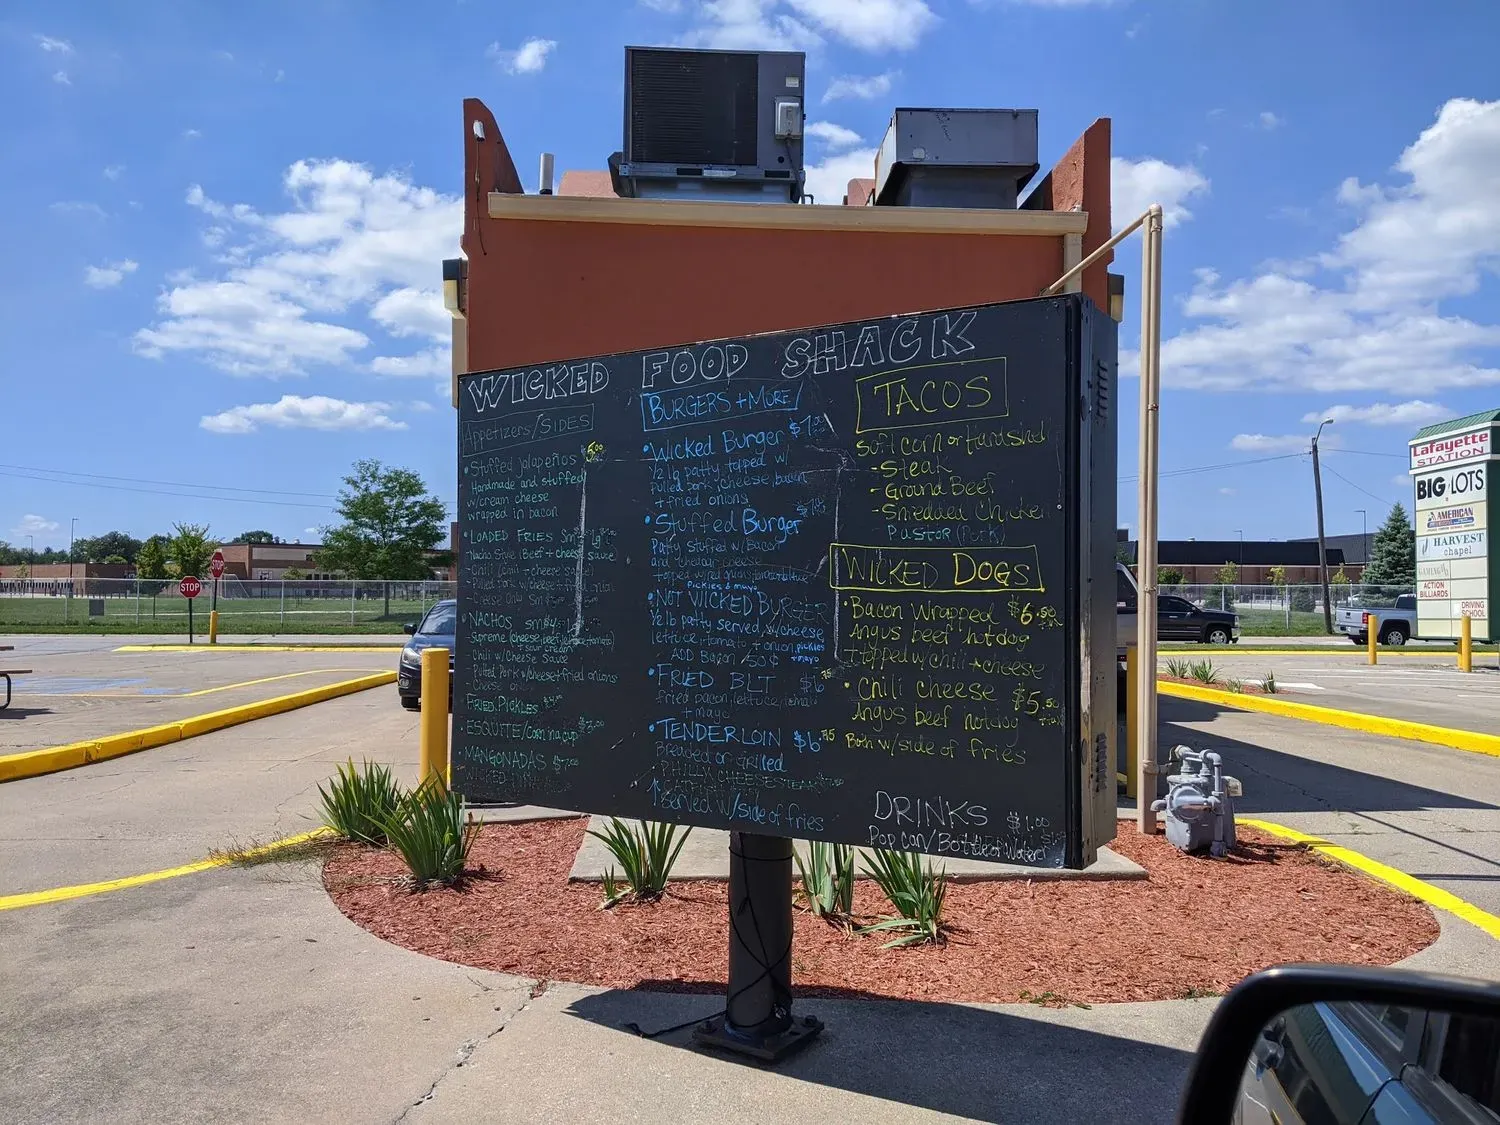 WICKED FOOD SHACK
Appetizers/SIDES
• Stuffed jalapeños $6.00
Handmade and stuffed
w/cream cheese
wrapped in bacon
• LOADED FRIES Sm Lg
Nacho Style (Beef + cheese sauce
Chili / chili + cheese sauce
Cheese Only
• NACHOS Sm
Supreme (cheese, beef, tomato)
+ sour cream
Chili w/Cheese Sauce
Pulled Pork w/cheese + fried onions
Cheese
FRIED PICKLES
ESQUITE/Corn in a cup
• MANGONADAS
WICKED
BURGERS + MORE/
• Wicked Burger $7
1/2 lb patty topped w/
Pulled Pork, cheese, bacon
+ fried onions
• Stuffed Burger
Patty stuffed w/Bacon
and cheddar cheese
topped w/
pickles & mayo
• NOT WICKED BURGER
1/2 lb patty served w/cheese
lettuce, tomato + onion, pickles
ADD Bacon /50¢ + mayo
• FRIED BLT $6.75
fried bacon, lettuce, tomato
+ mayo
• TENDERLOIN $6.75
Breaded or Grilled
PHILLY CHEESESTEAK
↑ Served w/side of fries
TACOS
Soft corn or Hardshell
- Steak
- Ground Beef
- Shredded Chicken
Pastor (Pork)
WICKED DOGS
• Bacon Wrapped $6.50
Angus beef hotdog
topped w/chili + cheese
• Chili cheese $5.50
Angus beef hotdog
Both w/side of fries
DRINKS $1.00
Pop can/Bottle of Water
STOP
STOP
Lafayette
STATION
BIG LOTS
AMERICAN
HARVEST
chapel
GAMING
ACTION
BILLIARDS
DRIVING
SCHOOL